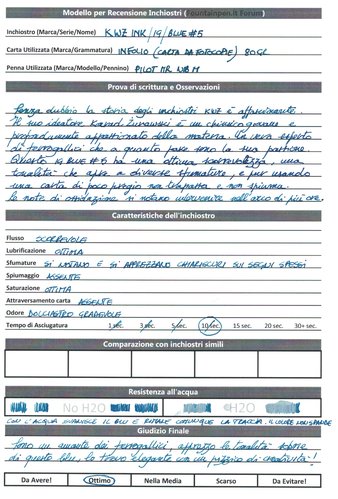 Modello per Recensione Inchiostri (Fountainpen.it Forum)
Inchiostro (Marca/Serie/Nome) KWZ INK/IG/BLUE #5
Carta Utilizzata (Marca/Grammatura) INFOLIO (CARTA DA FOTOCOPIE) 80GR.
Penna Utilizzata (Marca/Modello/Pennino) PILOT MR NIB M
Prova di scrittura e Osservazioni
Senza dubbio la storia degli inchiostri KWZ è affascinante.
Il suo ideatore Konrad Żurawski è un chimico giovane e
profondamente appassionato della materia. Un vero esperto
di ferrogallici che a quanto pare sono la sua passione.
Questo IG BLUE #5 ha una ottima scorrevolezza, una
tonalità che apre a diverse sfumature, e pur usando
una carta di poco pregio non trapassa e non spiuma.
Le note di ossidazione si notano intervenire nell'arco di più ore.
Caratteristiche dell'inchiostro
Flusso SCORREVOLE
Lubrificazione OTTIMA
Sfumature SI NOTANO E SI APPREZZANO CHIAROSCURI SUI SEGNI SPESSI
Spiumaggio ASSENTE
Saturazione OTTIMA
Attraversamento carta ASSENTE
Odore DOLCIASTRO GRADEVOLE
Tempo di Asciugatura 1 sec. 3 sec. 5 sec. 10 sec. 15 sec. 20 sec. 30+ sec.
Comparazione con inchiostri simili
Resistenza all'acqua
No H2O H2O
CON L'ACQUA SVANISCE IL BLU E RIMANE COMUNQUE LA TRACCIA. IL COLORE NON SI PERDE
Giudizio Finale
Sono un amante dei ferrogallici, apprezzo la tonalità sobria
di questo blu, lo trovo elegante con un pizzico di creatività!
Da Avere! Ottimo Nella Media Scarso Da Evitare!